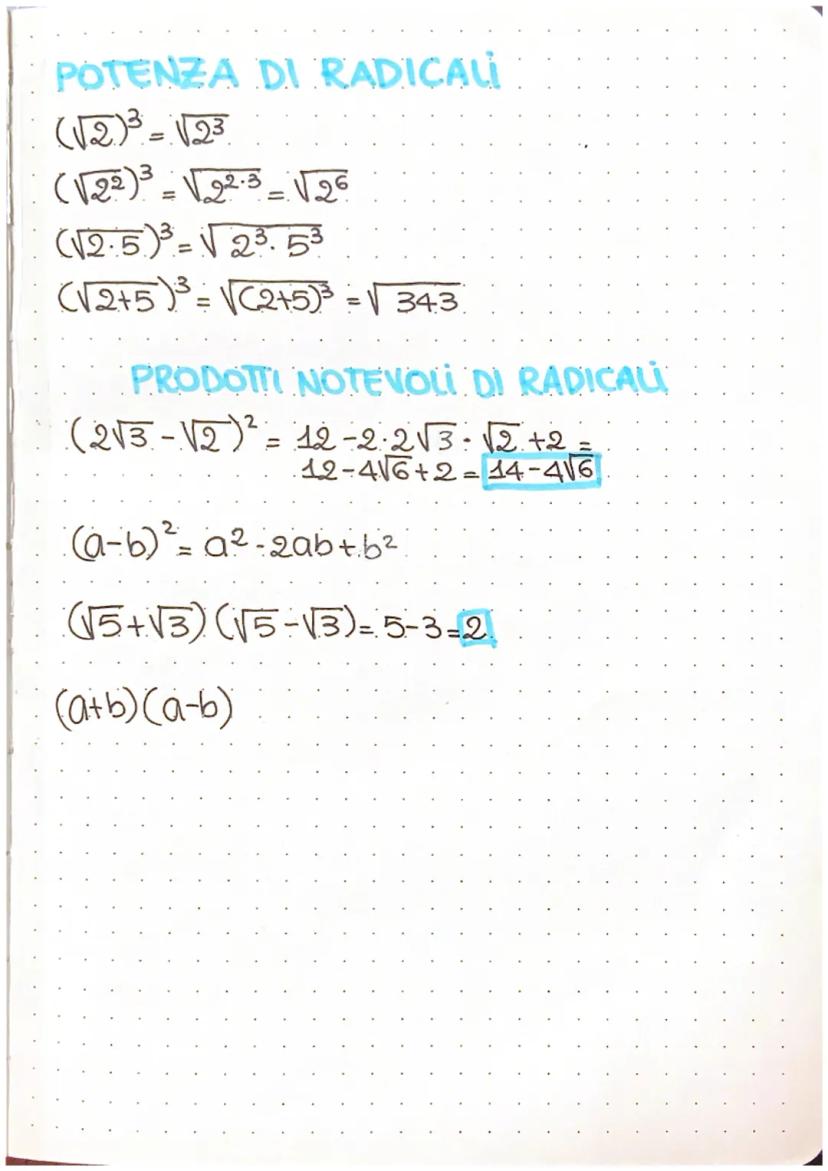 POTENZA DI RADICALI
(√2)³ = √2³
(√2²)³ = √2²·³ = √2⁶
(√2·5)³ = √2³·5³
(√2+5)³ = √(2+5)³ = √343
PRODOTTI NOTEVOLI DI RADICALI
(2√3 - √2)² = 12 - 2·2√3·√2 + 2 =
12 - 4√6 + 2 = 14 - 4√6
(a-b)² = a² - 2ab + b²
(√5+√3)(√5-√3) = 5-3 = 2
(a+b)(a-b)